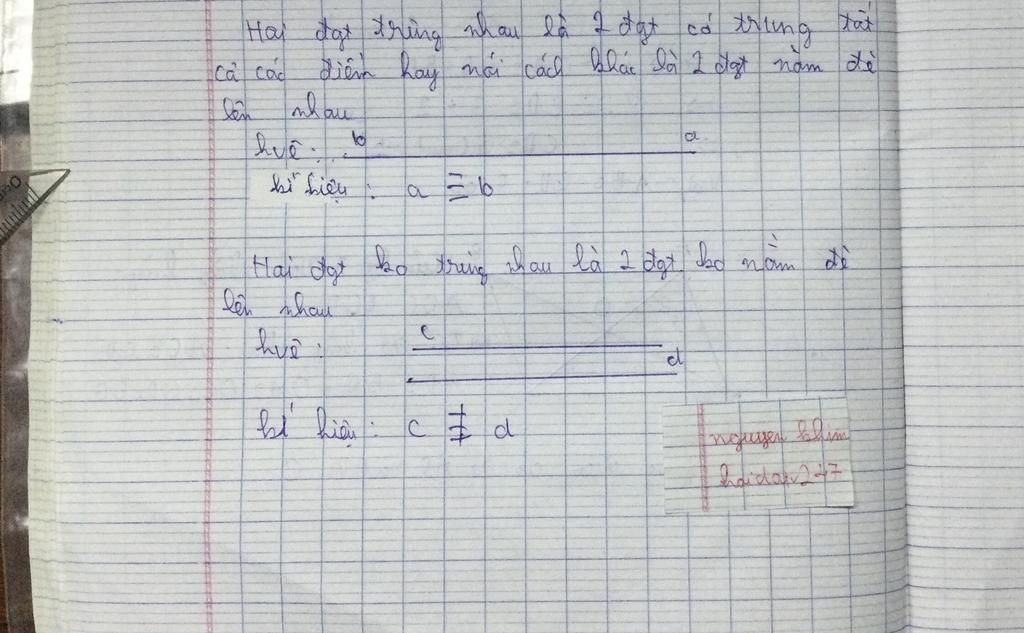 Hai đgt trùng nhau là 2 đgt có trung tất
cả các điểm hay nói cách khác là 2 đgt nằm đè
lên nhau
hvẽ: b a
kí hiệu: a ≡ b
Hai đgt ko trùng nhau là 2 đgt ko nằm đè
lên nhau
hvẽ: c
d
kí hiệu: c ≢ d
nguyen
hoidap247